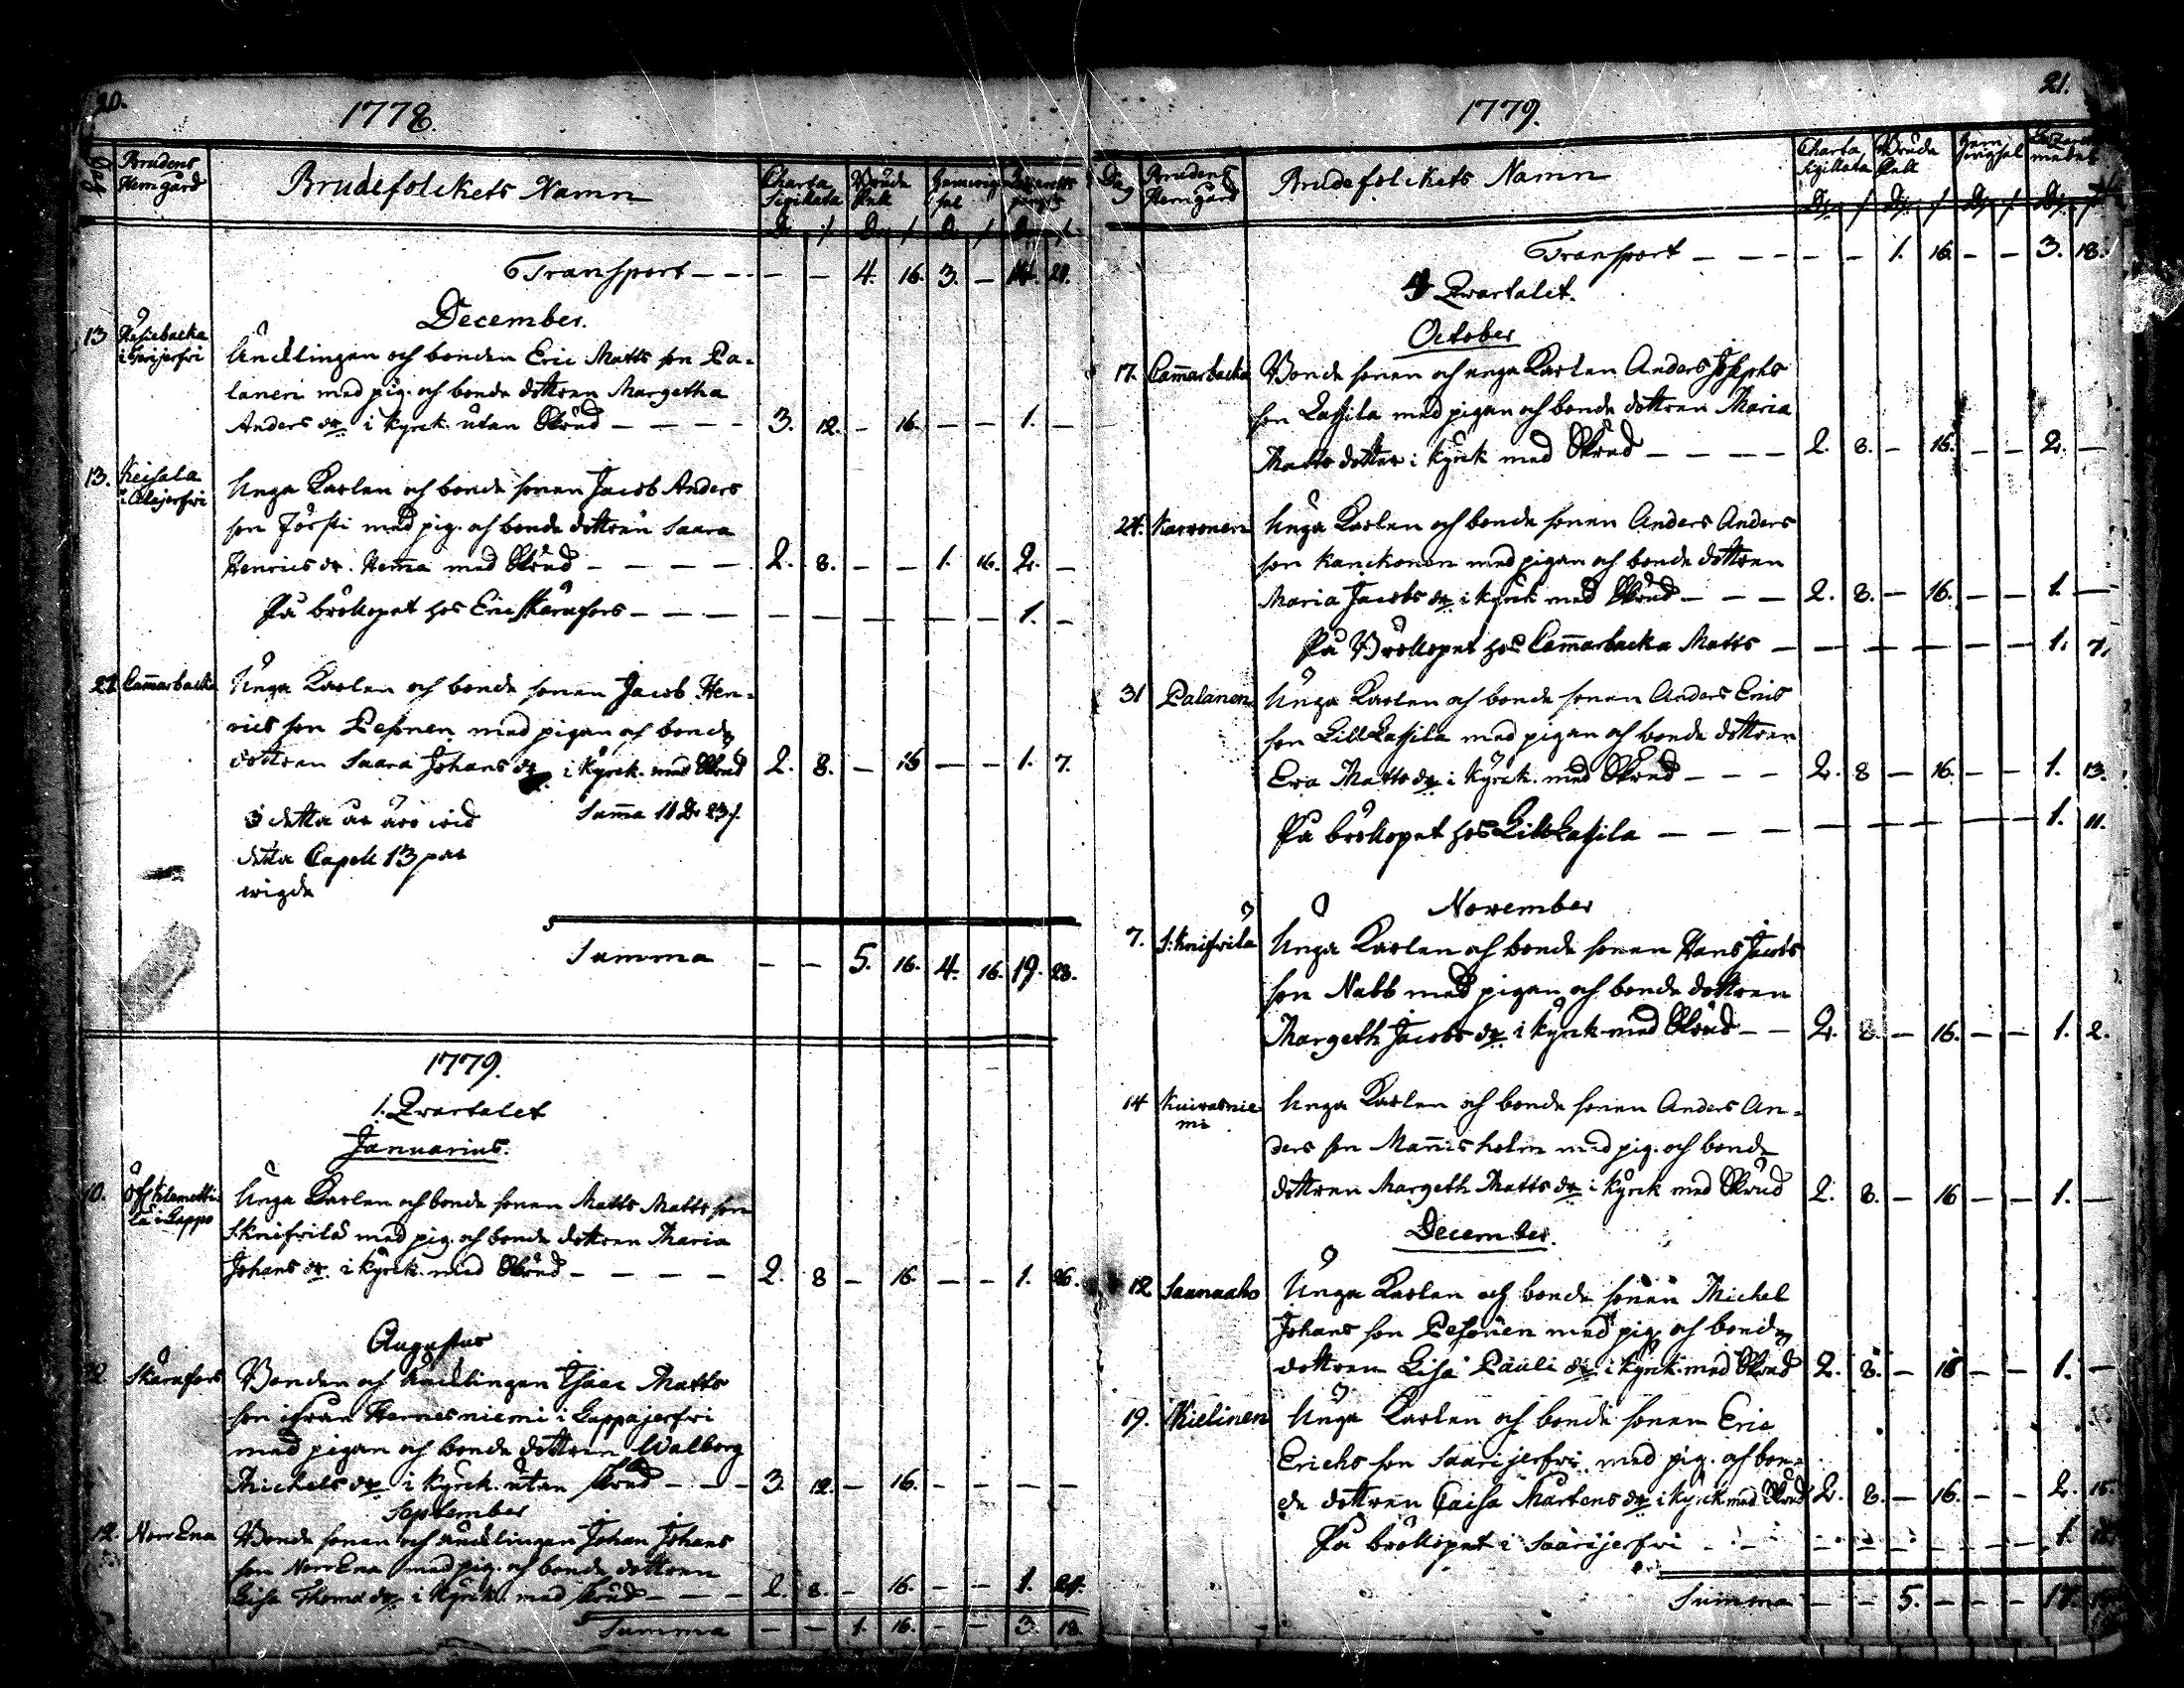 20.
1778.
Dag
Brudens Hemgård
Brudefolckets Namn
Charta Sigillata
Brude
Transport — — — — 4. 16. 3. — 14. 21.
December.
13 i Gerijerfwi
Äncklingen och bonden Eric Matts son Pa-
lanen med pig. och bonde dottren Margetha
Anders dr i kyrck. utan Skrud — — — — 3. 12. — 16. — — 1. —
13. Keisala i Alajerfwi
Unga Karlen och bonde sonen Jacob Anders
son Jörsti med pig. och bonde dottren Saara
Henrics dr. Hema med Skrud — — — — 2. 8. — — 1. 16. 2. —
På bröllopet hos Eric Skårafors — — — — — — — — — 1. —
27. Camarbacka
Unga Karlen och bonde sonen Jacob Hen-
rics son Pesonen med pigan och bonde
dottren Saara Johans dr i kyrck. med Skrud 2. 8. — 16 — — 1. 7.
I detta år äro wid
detta Capell 13 par
wigde
Summa 11 Dr 23
Summa — — 5. 16. 4. 16. 19. 28.
1779.
1. Qvartalet
Januarius.
10. Öfs Klemetti-
la i Lappo
Unga Karlen och bonde sonen Matts Matts son
S. Knifwilä med pig. och bonde dottren Maria
Johans dr. i kyrck. med Skrud — — — — 2. 8 — 16. — — 1. 26.
Augustus
22 Skårafors
Bonden och Äncklingen Isaac Matts
son ifrån Hernesniemi i Lappajerfwi
med pigan och bonde dottren Walborg
Michels dr i kyrck. utan skrud — — — 3. 12. — 16. — — — —
September
12. Norr Ena
Bonde sonen och äncklingen Johan Johans
son Norr Ena med pig. och bonde dottren
Lisa Thoma dr i kyrck. med skrud — — — 2. 8. — 16. — — 1. 24.
Summa — — 1. 16. — — 3. 18.
21.
1779.
Dag
Brudens Hemgård
Brudefolckets Namn
Charta Sigillata
Brude
Transport — — — — — 1. 16. — — 3. 18.
4 Qvartalet.
October
17. Camarbacka
Bonde sonen och unga Karlen Anders Josephs
son Lassila med pigan och bonde dottren Maria
Matts dotter i kyrck med Skrud — — — — 2. 8. — 16. — — 2. —
24. Karvonen
Unga Karlen och bonde sonen Anders Anders
son Kanckonen med pigan och bonde dottren
Maria Jacobs dr i kyrck med Skrud — — — 2. 8. — 16. — — 1. —
På Bröllopet hos Camarbacka Matts — — — — — — — 1. 7.
31 Palanen
Unga Karlen och bonde sonen Anders Erics
son Lill Lassila med pigan och bonde dottren
Eva Matts dr i kyrck. med Skrud — — — 2. 8 — 16. — — 1. 13.
På bröllopet hos Lill Lassila — — — — — — — — — 1. 11.
November
7. S. Knifwilä
Unga Karlen och bonde sonen Hans Jacobs
son Nabb med pigan och bonde dottren
Margeth Jacobs dr i kyrck med Skrud — — 2. 8. — 16. — — 1. 2.
14 Kuiwasnie
mi
Unga Karlen och bonde sonen Anders An-
ders son Mannisholm med pig. och bonde
dottren Margeth Matts dr i kyrck med Skrud 2. 8. — 16 — — 1. —
December.
12 Saunaaho
Unga Karlen och bonde sonen Michel
Johans son Pesonen med pig. och bonde
dottren Lisa Pauli dr i kyrck. med Skrud 2. 8. — 16 — — 1. —
19. Kielinen
Unga Karlen och bonde sonen Eric
Erichs son Saarijerfwi med pig. och bon-
de dottren Caisa Mårtens dr i kyrck med Skrud 2. 8. — 16. — — 2. 15.
På bröllopet i Saarijerfwi — — — — — — — — 1.
Summa — — 5. — — — 17.